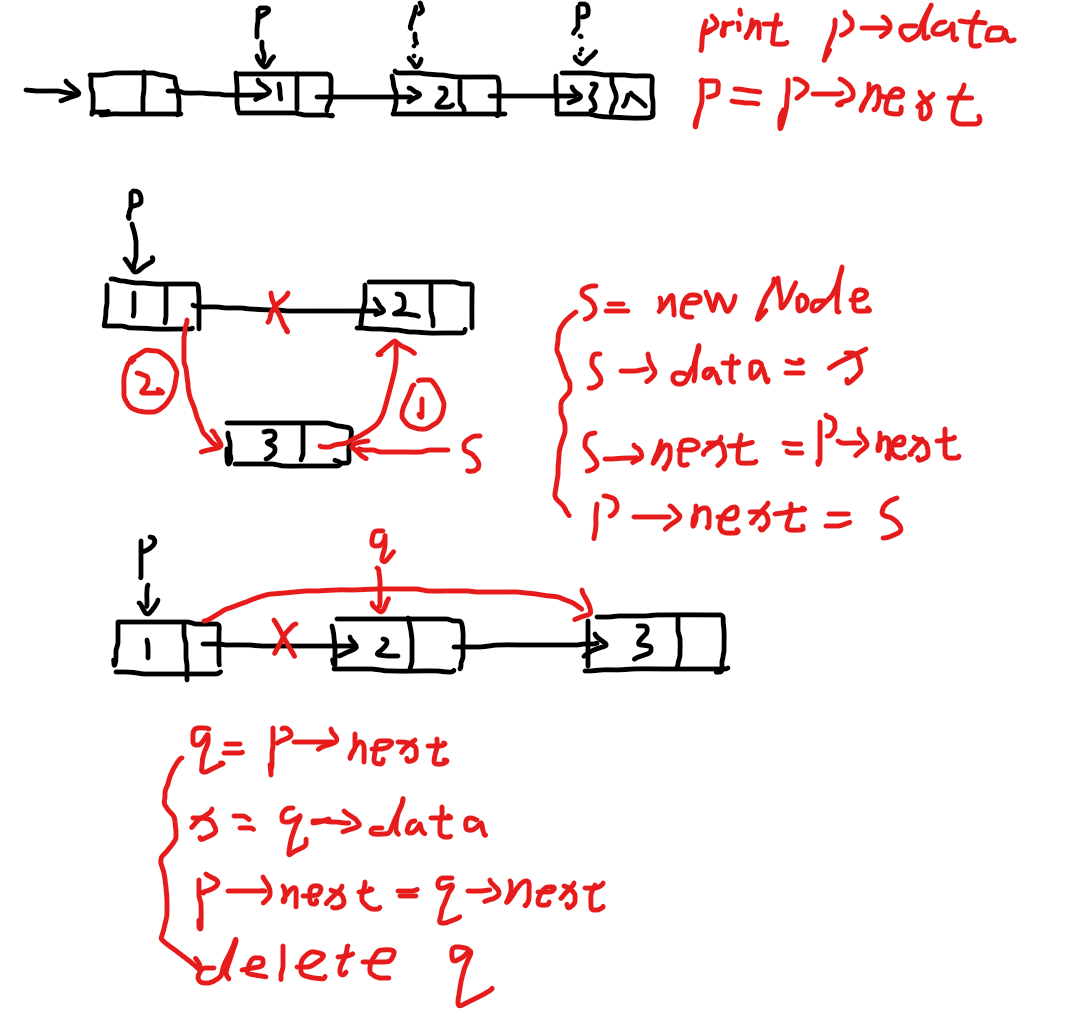 p p p
1 2 3 ∧
print p→data
p = p→next
p
1 2
② ①
3 S
S = new Node
S→data = x
S→next = P→next
P→next = S
p q
1 2 3
q = p→next
x = q→data
p→next = q→next
delete q